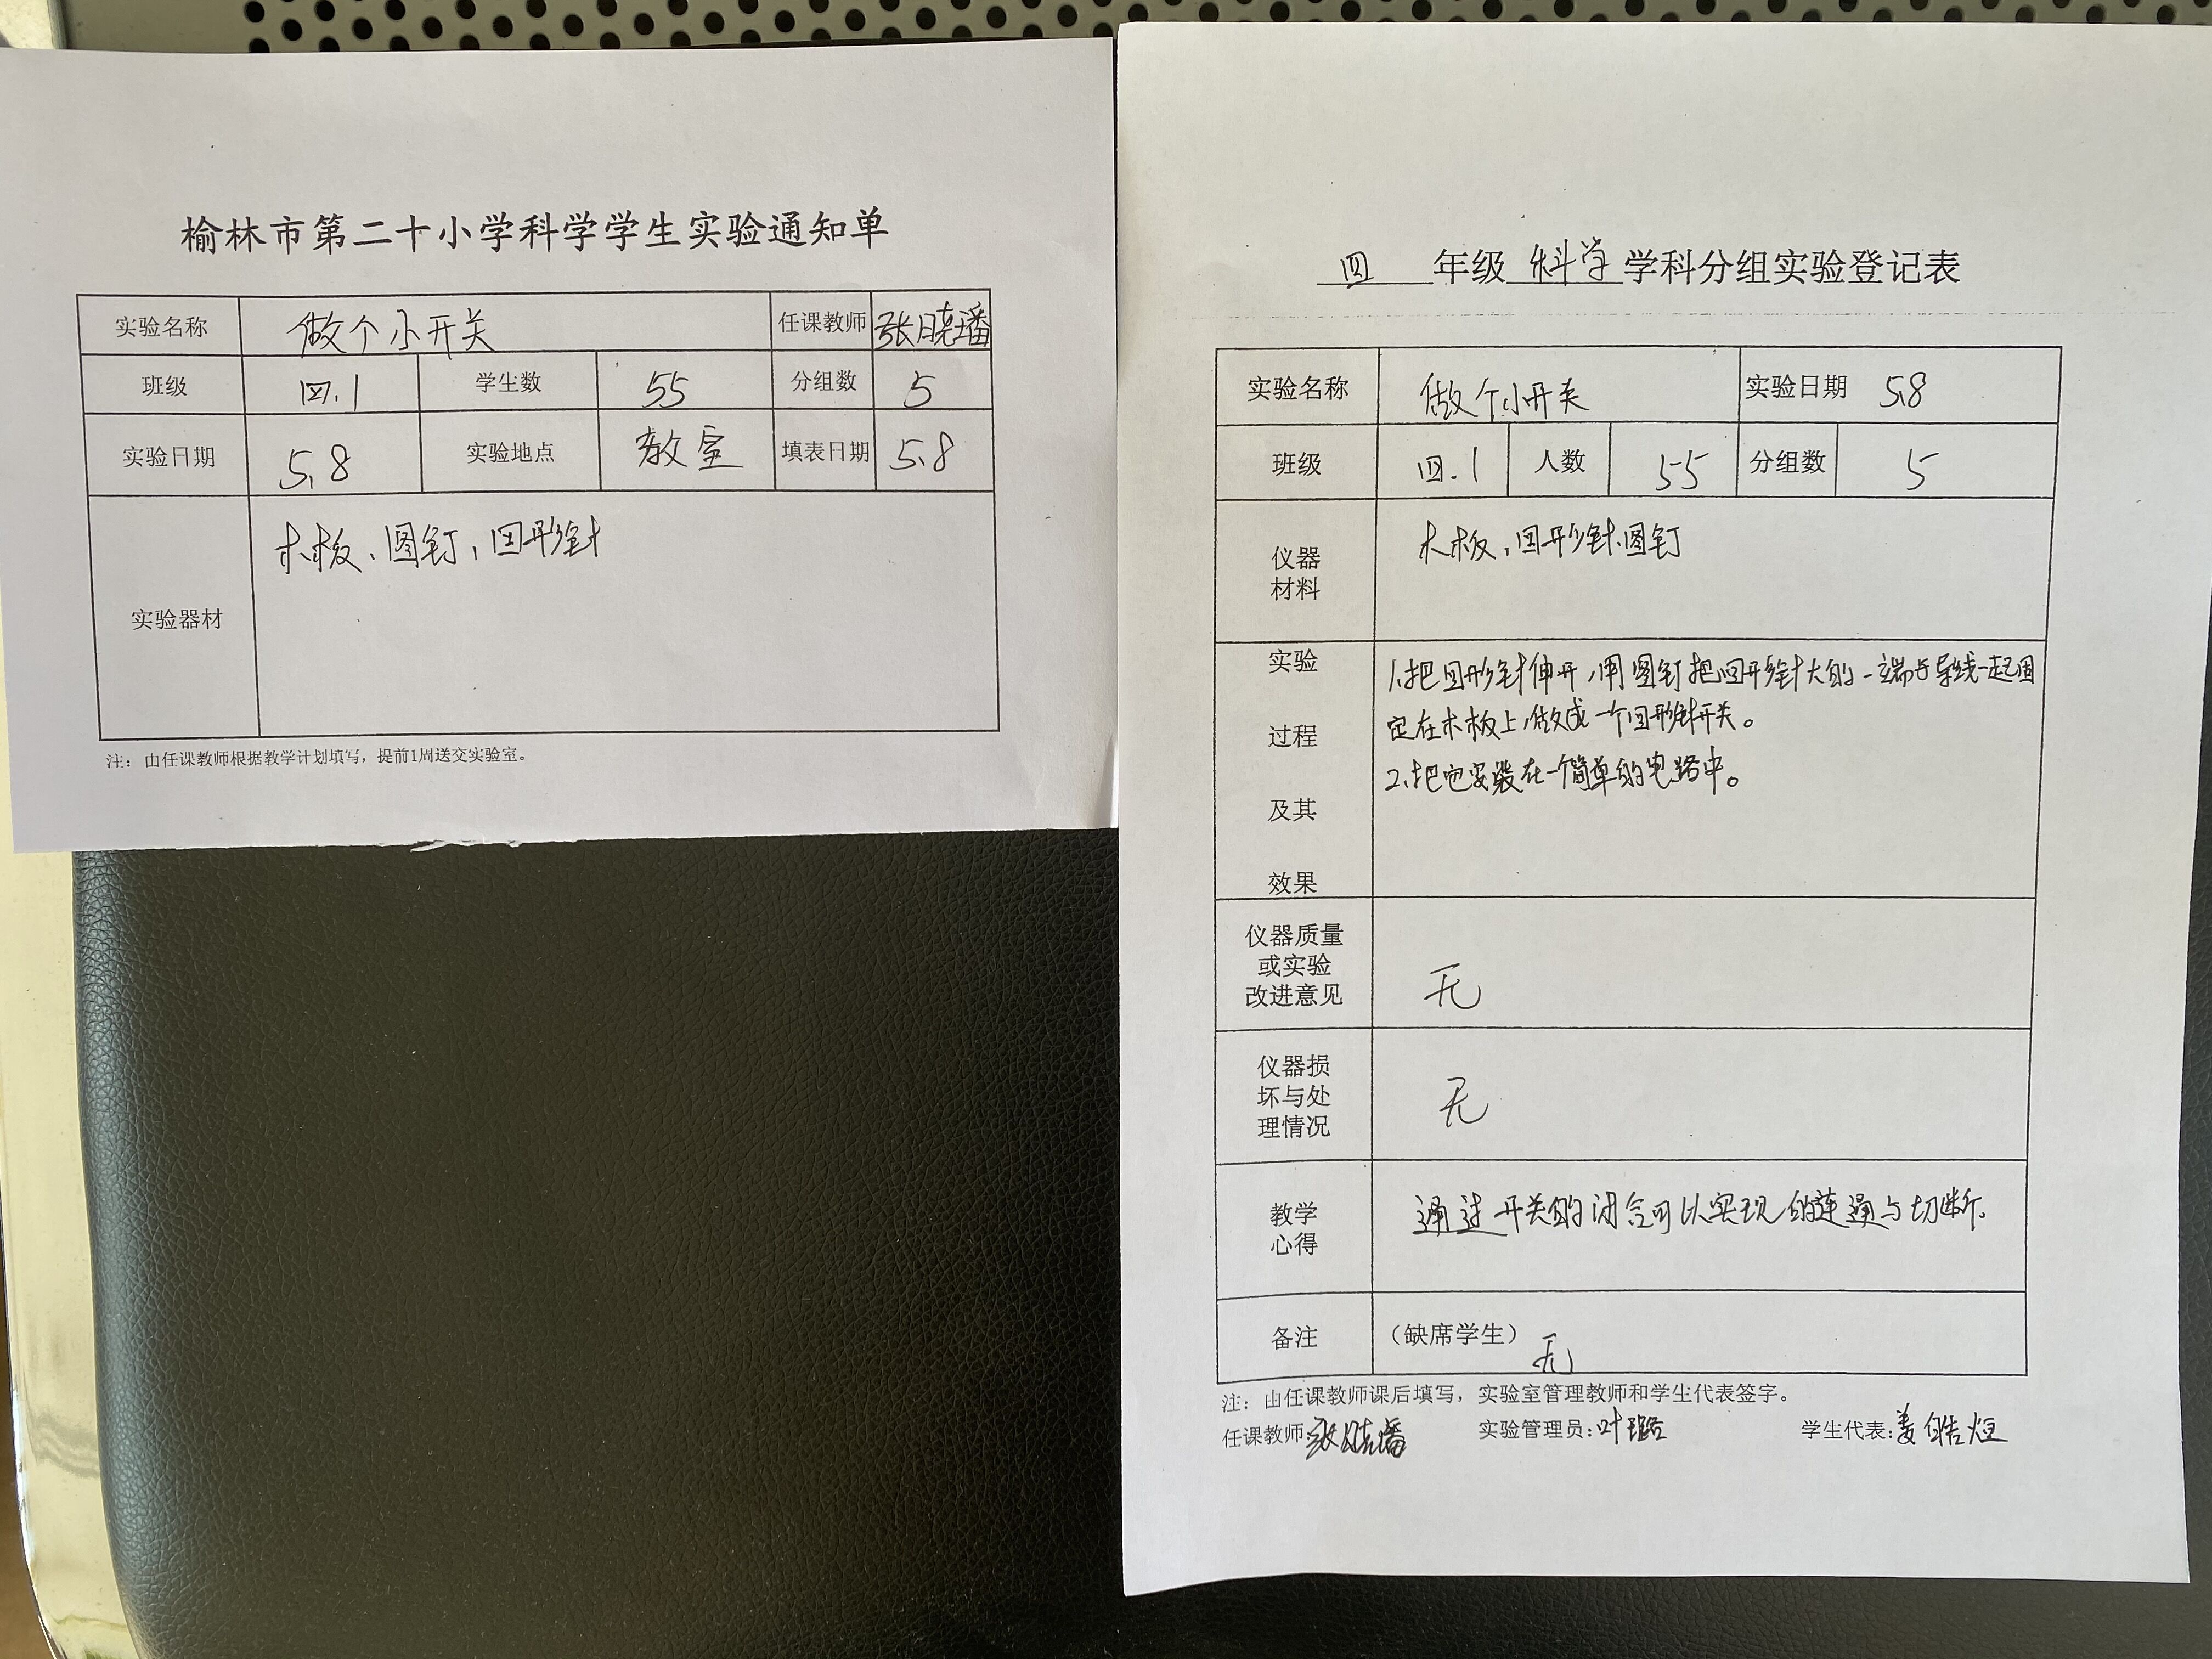 榆林市第二十小学科学学生实验通知单
实验名称 做个小开关 任课教师 张晓璠
班级 四.1 学生数 55 分组数 5
实验日期 5.8 实验地点 教室 填表日期 5.8
实验器材 木板、图钉、回形针
注：由任课教师根据教学计划填写，提前1周送交实验室。
四 年级 科学 学科分组实验登记表
实验名称 做个小开关 实验日期 5.8
班级 四.1 人数 55 分组数 5
仪器
材料
木板、回形针、图钉
实验
过程
及其
效果
1.把回形针伸开，用图钉把回形针大的一端与导线一起固
定在木板上，做成一个回形针开关。
2.把它安装在一个简单的电路中。
仪器质量
或实验
改进意见
无
仪器损
坏与处
理情况
无
教学
心得
通过开关的闭合可以实现的连通与切断.
备注 （缺席学生） 无
注：由任课教师课后填写，实验室管理教师和学生代表签字。
任课教师:张晓璠 实验管理员:叶璐 学生代表:姜皓烜